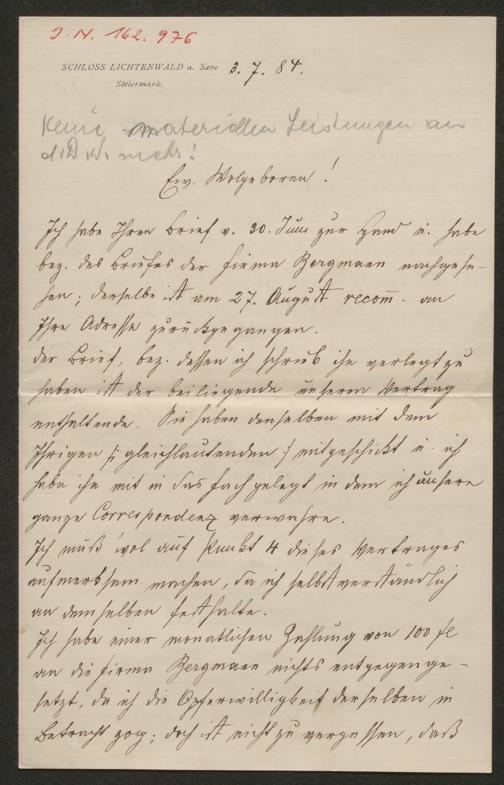 J. N. 162.976
SCHLOSS LICHTENWALD a. Save 3.7.84.
Steiermark.
Keine materiellen Leistungen an
d. D. W. mehr!
Ew. Wolgeboren!
Ich habe Ihren Brief v. 30. Juni zur Hand u. habe
bez. des Briefes der Firma Bergmann nachgese-
hen; derselbe ist am 27. August recom̄. an
Ihre Adresse zurückgegangen.
Der Brief, bez. dessen ich schrieb ihn verlegt zu
haben ist der beiliegende unseren Vertrag
enthaltende. Sie haben denselben mit dem
Ihrigen /: gleichlautenden :/ mitgeschickt u. ich
habe ihn mit in das Fach gelegt in dem ich unsere
ganze Correspondenz verwahre.
Ich muß wol auf Punkt 4 dieses Vertrages
aufmerksam machen, da ich selbstverständlich
an demselben festhalte.
Ich habe einer monatlichen Zahlung von 100 fl
an die Firma Bergmann nichts entgegenge-
setzt, da ich die Opferwilligkeit derselben in
Betracht zog; doch ist nicht zu vergessen, daß